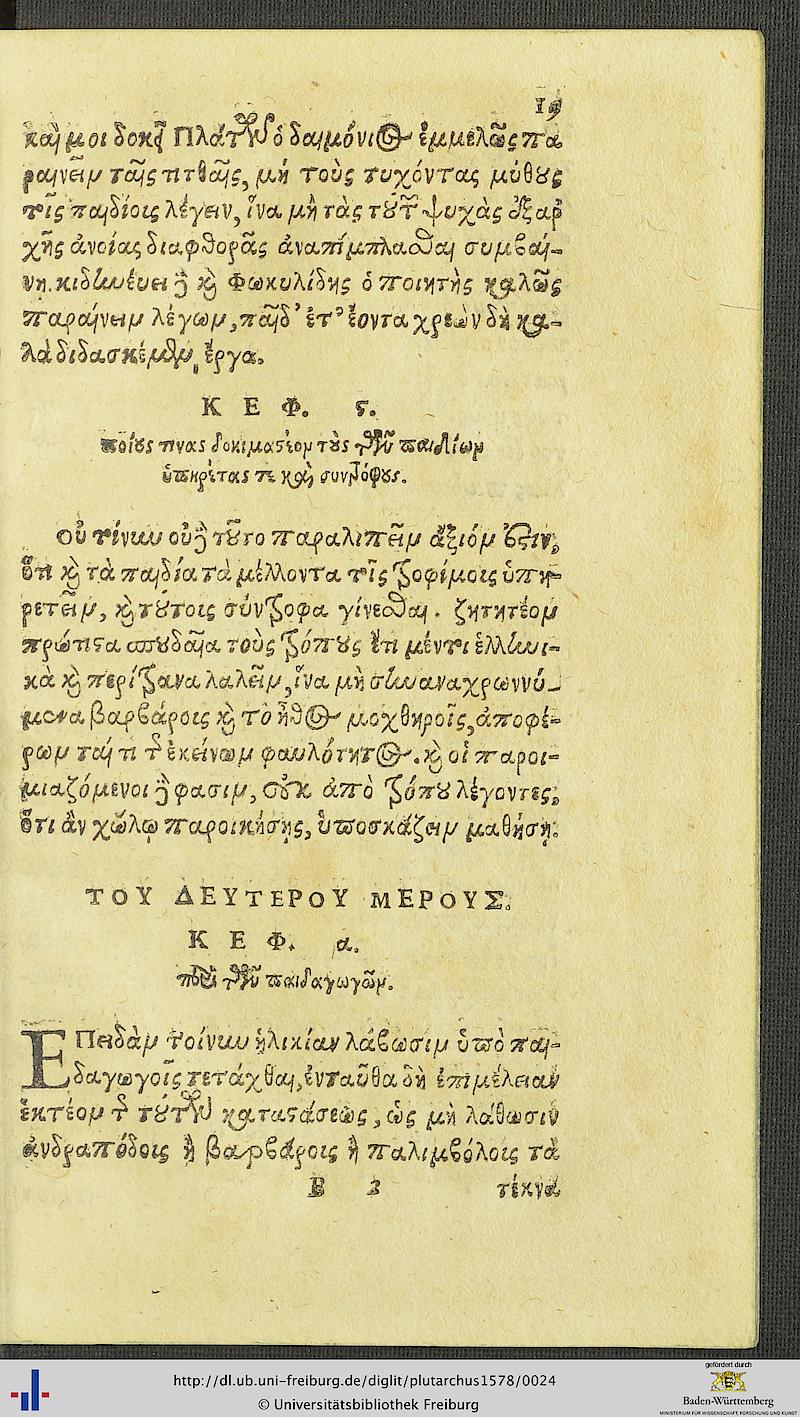 19
καί μοι δοκεῖ Πλάτων ὁ δαιμόνιος ἐμμελῶς πα
ραινεῖν ταῖς τιτθαῖς, μὴ τοὺς τυχόντας μύθους
τοῖς παιδίοις λέγειν, ἵνα μὴ τὰς τούτων ψυχὰς ἐξ ἀρ
χῆς ἀνοίας διαφθορᾶς ἀναπίμπλασθαι συμβαί-
νῃ. κιδωνέυει δὲ καὶ Φωκυλίδης ὁ ποιητὴς καλῶς
παραίνειν λέγων, παῖδ' ἐτ' ἐόντα χρεὼν δὴ κα-
λὰ διδασκέμεν ἔργα.
Κ Ε Φ. ς.
ποίους τινας δοκιμαστέον τοὺς τῶν παιδίων
ὑπηρέτας τε καὶ συντρόφους.
Οὐ τοίνυν οὐδὲ τοῦτο παραλιπεῖν ἄξιόν ἐστιν,
ὅτι καὶ τὰ παιδία τὰ μέλλοντα τοῖς τροφίμοις ὑπη-
ρετεῖν, καὶ τούτοις σύντροφα γίνεσθαι. ζητητέον
πρώτιστα σπουδαῖα τοὺς τρόπους ἔτι μέντοι ἑλλωνι-
κὰ καὶ περίτρανα λαλεῖν, ἵνα μὴ συναναχρωννύ-
μενα βαρβάροις καὶ τὸ ἦθος μοχθηροῖς, ἀποφέ-
ρων ταί τι τῆς ἐκείνων φαυλότητος. καὶ οἱ παροι-
μιαζόμενοι δὲ φασιν, οὐκ ἀπὸ τρόπου λέγοντες,
ὅτι ἂν χώλῳ παροικήσῃς, ὑποσκάζειν μαθήσῃ.
ΤΟΥ ΔΕΥΤΕΡΟΥ ΜΕΡΟΥΣ.
Κ Ε Φ. α.
περὶ τῶν παιδαγωγῶν.
ΕΠειδὰν τοίνυν ἡλικίαν λάβωσιν ὑπὸ παι-
δαγωγοῖς τετάχθαι, ἐνταῦθα δὴ ἐπιμέλειαν
ἑκτέον τῆς τούτων καταστάσεως, ὡς μὴ λάθωσιν
ἀνδραπόδοις ἢ βαρβάροις ἢ παλιμβόλοις τὰ
B 2 τέκνα
gefördert durch
http://dl.ub.uni-freiburg.de/diglit/plutarchus1578/0024
© Universitätsbibliothek Freiburg
Baden-Württemberg
MINISTERIUM FÜR WISSENSCHAFT, FORSCHUNG UND KUNST